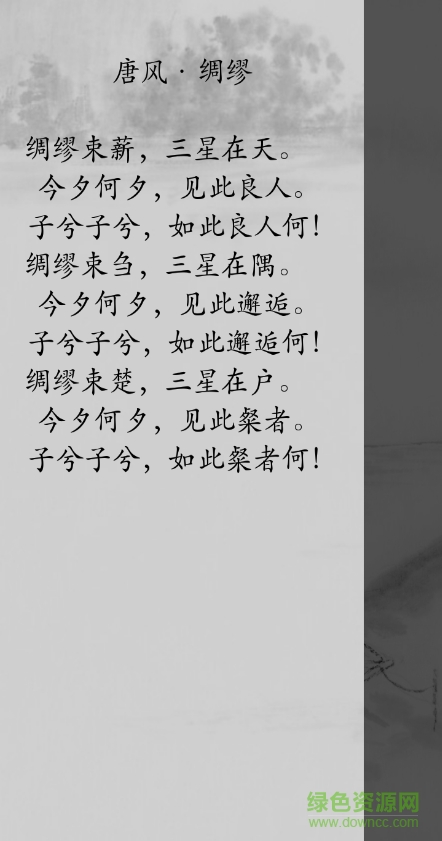 唐风·绸缪
绸缪束薪，三星在天。
今夕何夕，见此良人。
子兮子兮，如此良人何！
绸缪束刍，三星在隅。
今夕何夕，见此邂逅。
子兮子兮，如此邂逅何！
绸缪束楚，三星在户。
今夕何夕，见此粲者。
子兮子兮，如此粲者何！
绿色资源网
www.downcc.com